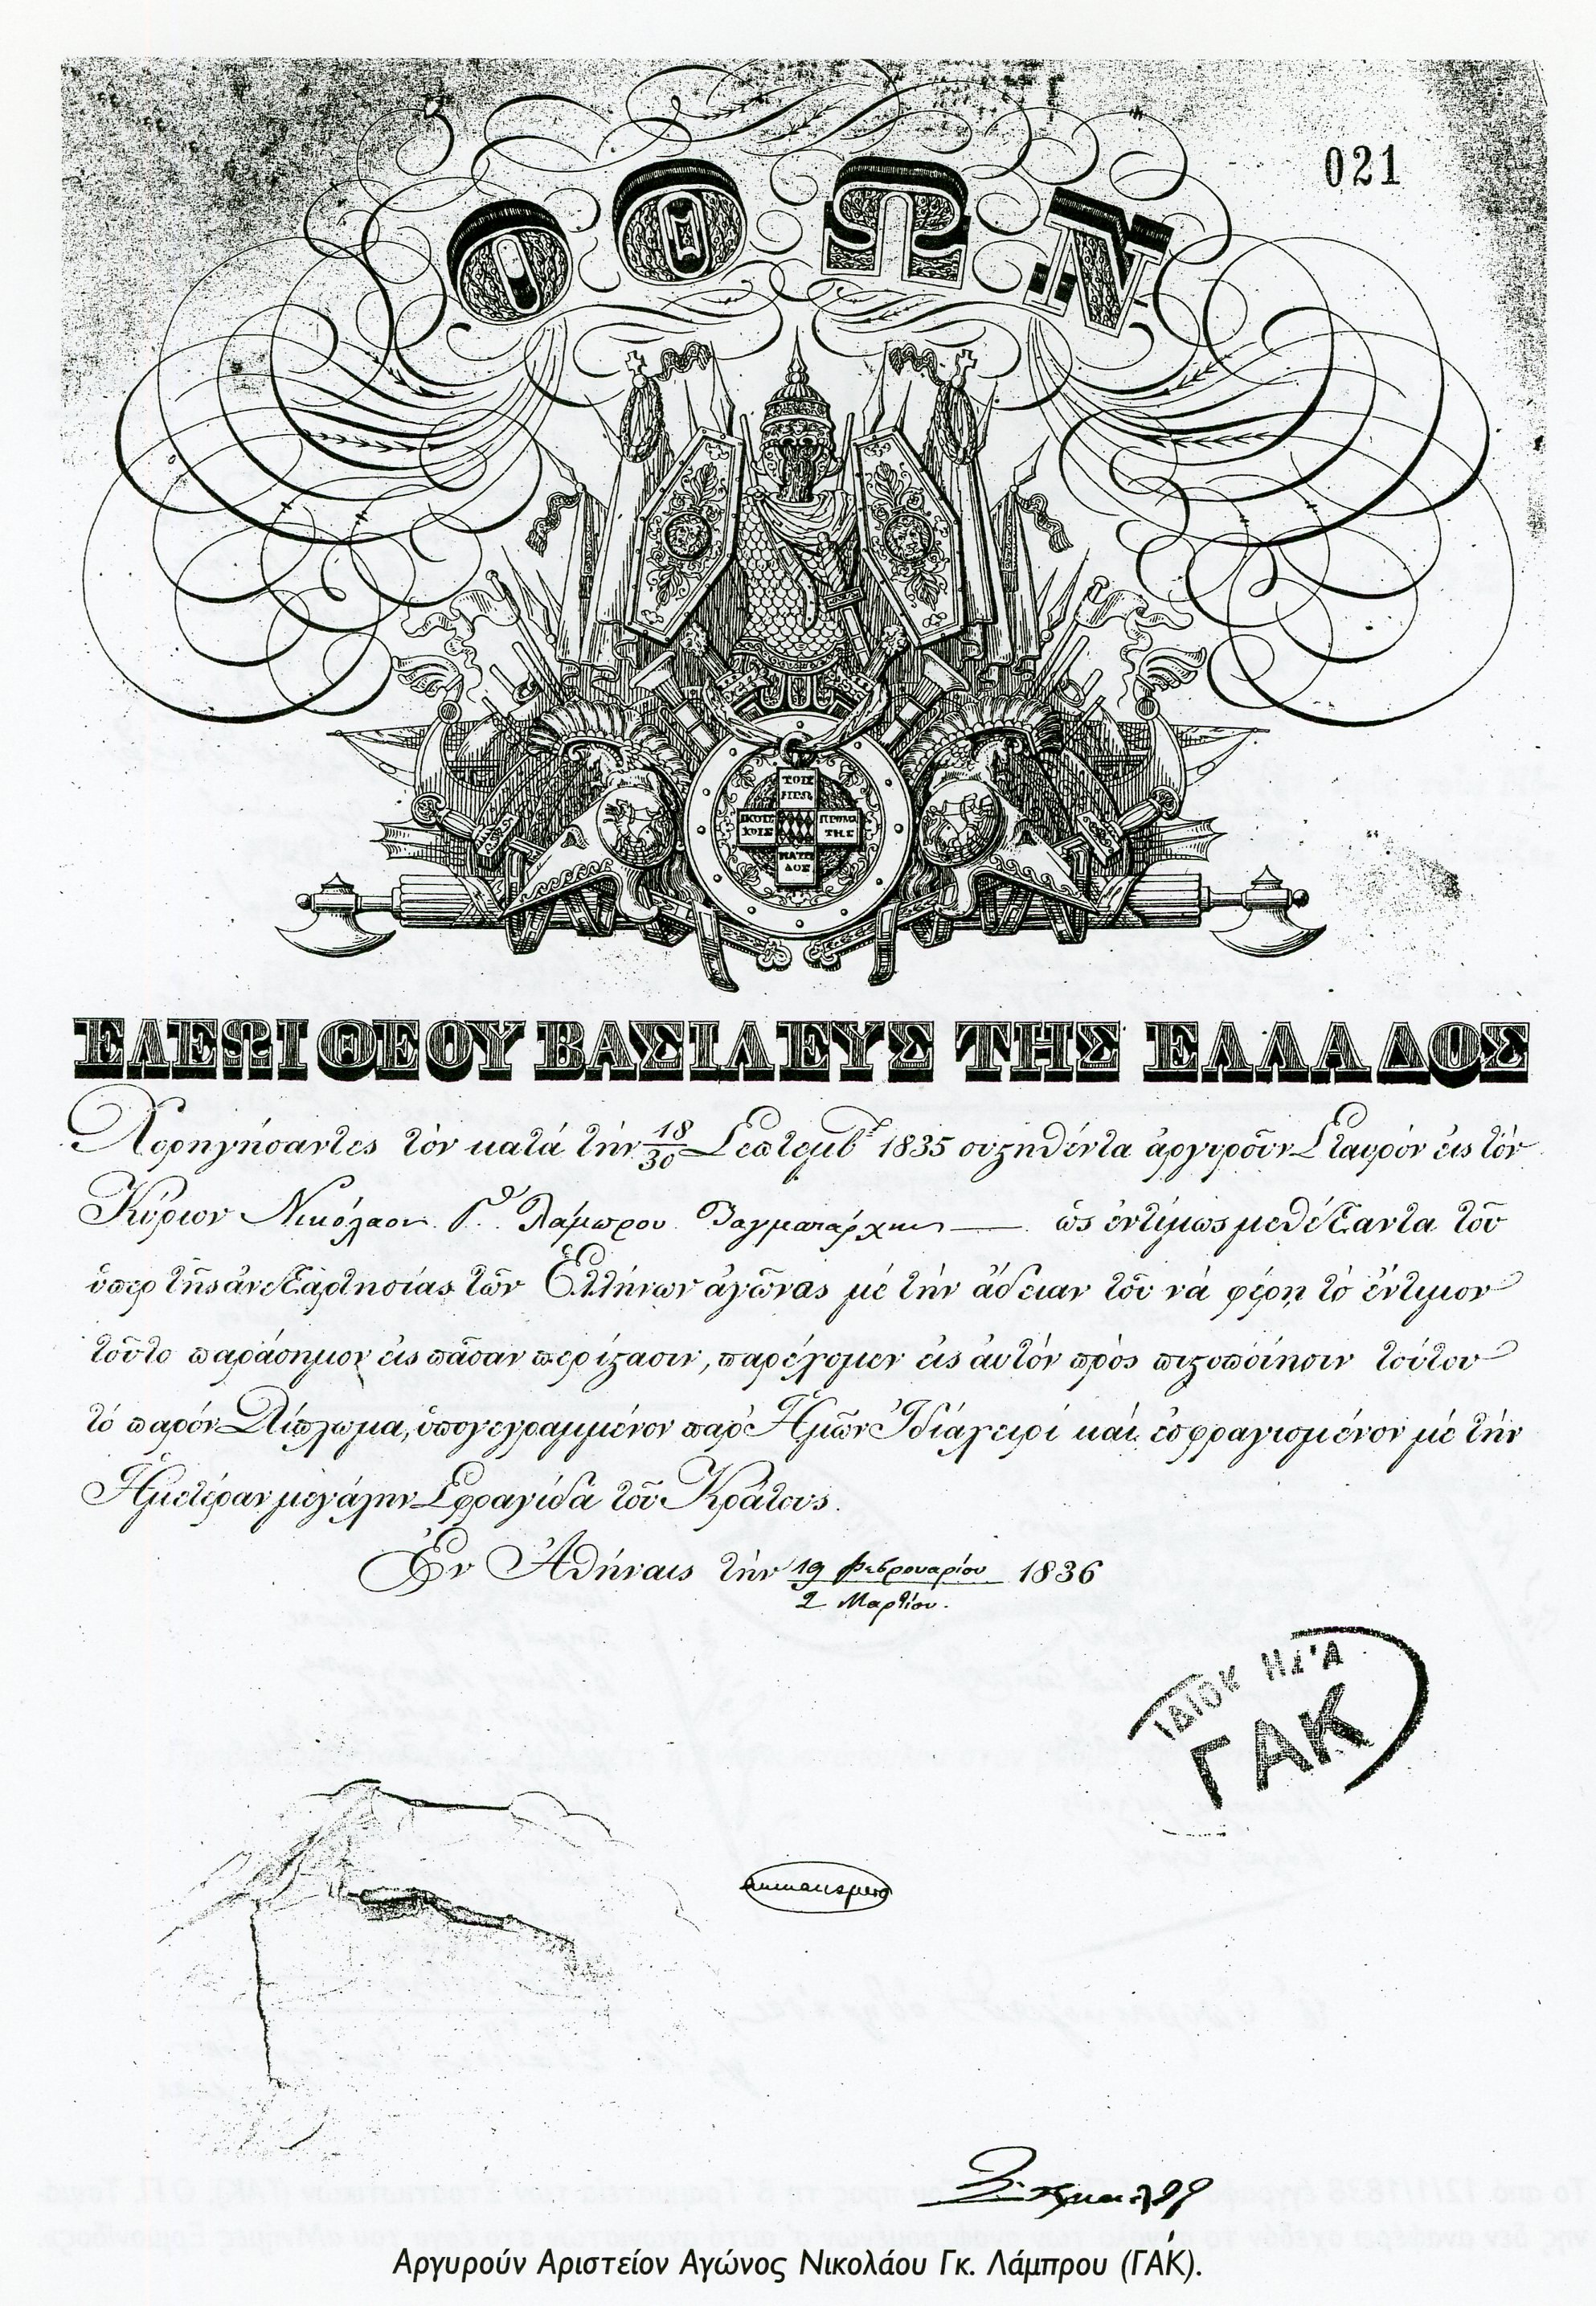 021
ΟΘΩΝ
ΤΟΙΣ
ΗΡΩ
ΙΚΟΙΣ
ΠΡΟΜΑ
ΧΟΙΣ
ΤΗΣ
ΠΑΤΡΙ
ΔΟΣ
ΕΛΕΩΙ ΘΕΟΥ ΒΑΣΙΛΕΥΣ ΤΗΣ ΕΛΛΑΔΟΣ
Χορηγήσαντες τὸν κατὰ τὴν 18/30 Σεπτεμβ. 1835 συςηθέντα ἀργυροῦν Σταυρόν εἰς τὸν
Κύριον Νικόλαον Γ. Λάμπρου Ταγματάρχην — ὡς ἐντίμως μεθέξαντα τοῦ
ὑπερ τῆς ἀνεξαρτησίας τῶν Ἑλλήνων ἀγῶνας μὲ τὴν ἄδειαν τοῦ νὰ φέρῃ τὸ ἔντιμον
τοῦτο παράσημον εἰς πᾶσαν περίςασιν, παρέχομεν εἰς ἀυτόν πρὸς πιςοποίησιν τούτου
τὸ παρόν Δίπλωμα, ὑπογεγραμμένον παρ' Ἡμῶν Ἰδιαχειρί καὶ ἐσφραγισμένον μὲ τὴν
Ἡμετέραν μεγάλην Σφραγίδα τοῦ Κράτους.
Ἐν Ἀθήναις τὴν 19 Φεβρουαρίου 1836
2 Μαρτίου.
ΓΑΚ
Αργυρούν Αριστείον Αγώνος Νικολάου Γκ. Λάμπρου (ΓΑΚ).